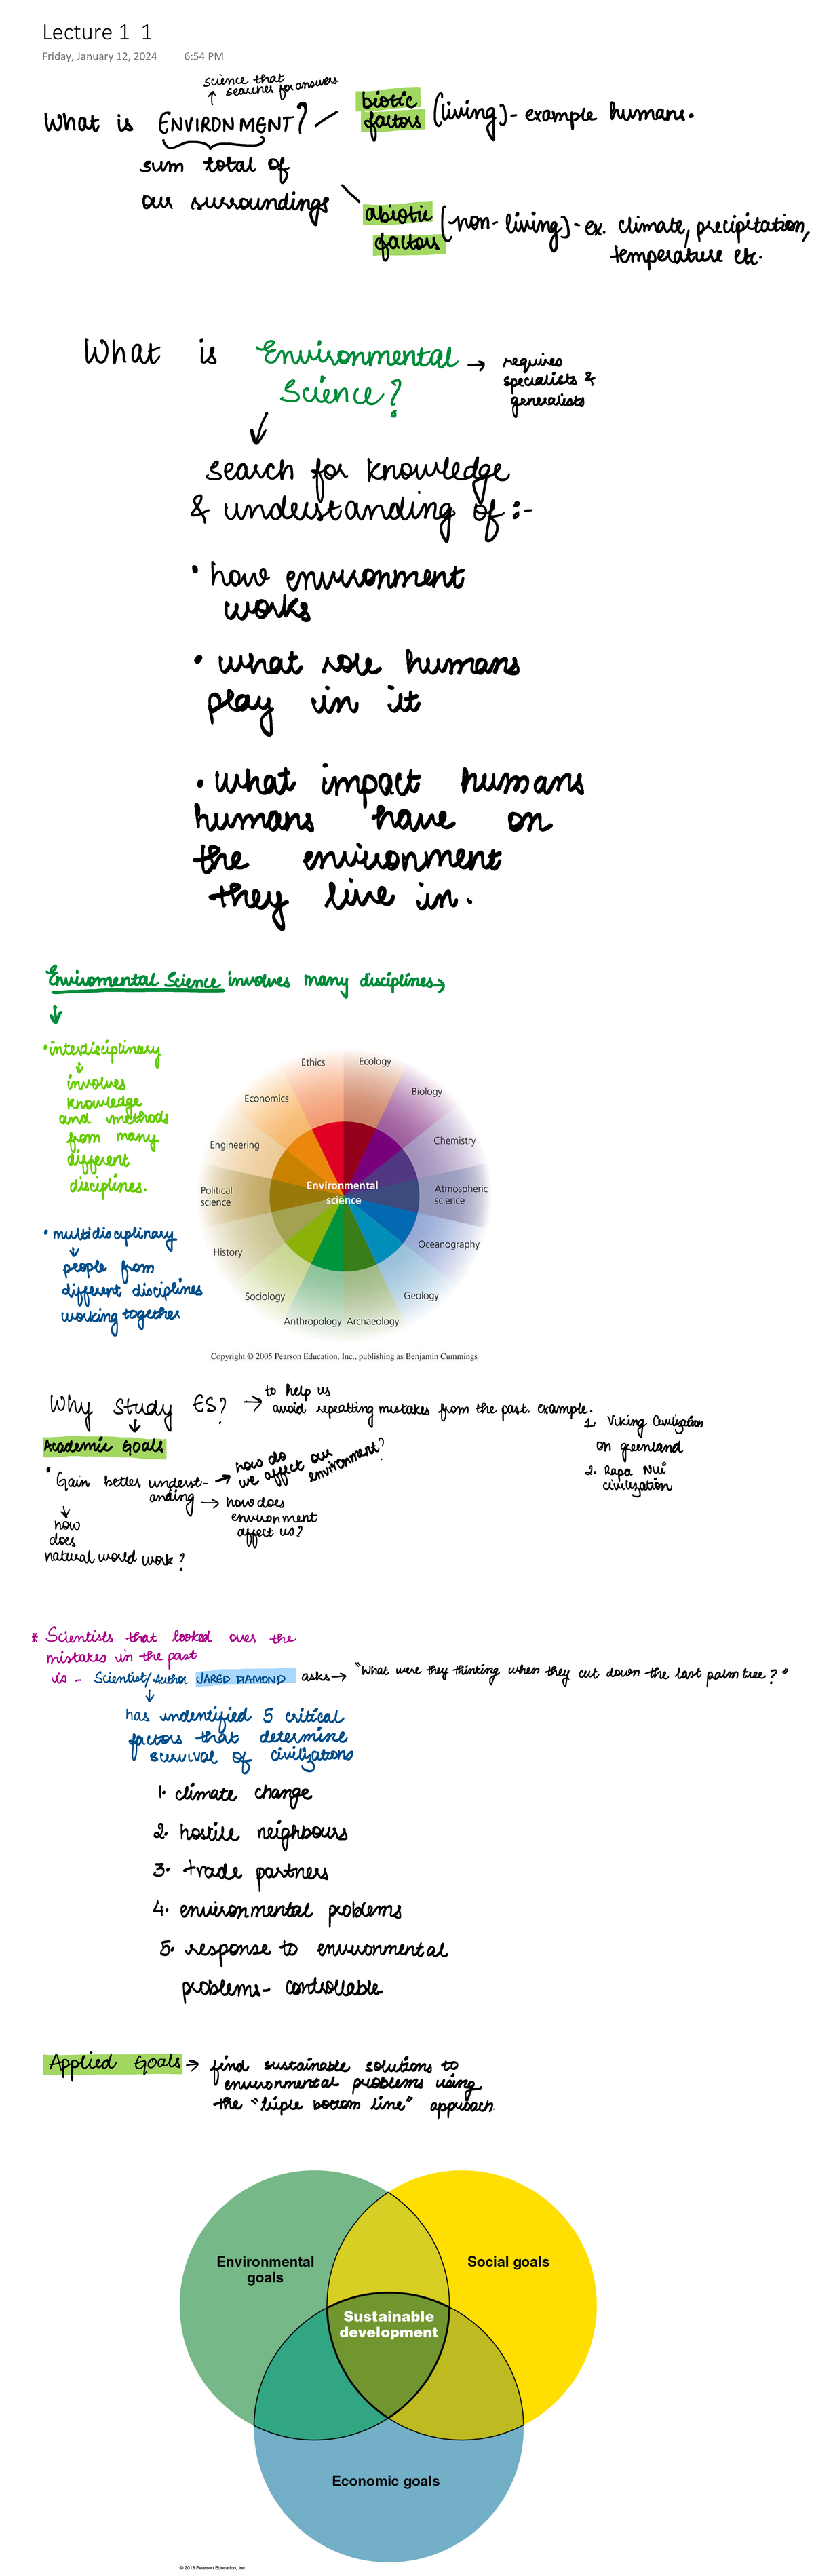 Lecture 1 1
Friday, January 12, 2024 6:54 PM
science that
searches for answers
What is ENVIRONMENT?
sum total of
our surroundings
biotic
factors (living) - example humans.
abiotic
factors (non-living) - ex. climate, precipitation,
temperature etc.
What is Environmental
Science?
requires
specialists &
generalists
search for knowledge
& understanding of :-
• how environment
works
• what role humans
play in it
• what impact humans
humans have on
the environment
they live in.
Enviromental Science involves many disciplines→
• interdisciplinary
involves
knowledge
and methods
from many
different
disciplines.
• multidisciplinary
people from
different disciplines
working together
Ethics
Ecology
Economics
Biology
Engineering
Chemistry
Political
science
Environmental
science
Atmospheric
science
History
Oceanography
Sociology
Geology
Anthropology
Archaeology
Copyright © 2005 Pearson Education, Inc., publishing as Benjamin Cummings
Why Study ES? → to help us
avoid repeatting mistakes from the past. example.
1. Viking Civilization
on greenland
2. Rapa Nui
civilization
Academic Goals
• Gain better underst-
anding
→ how do
we affect our
environment?
→ how does
environment
affect us?
how
does
natural world work?
* Scientists that looked over the
mistakes in the past
is - Scientist/Author JARED DIAMOND asks → "What were they thinking when they cut down the last palm tree?"
has undentified 5 critical
factors that determine
survival of civilizations
1. climate change
2. hostile neighbours
3. trade partners
4. environmental problems
5. response to environmental
problems - controllable
Applied Goals → find sustainable solutions to
environmental problems using
the "triple bottom line" approach.
Environmental
goals
Social goals
Sustainable
development
Economic goals
© 2018 Pearson Education, Inc.